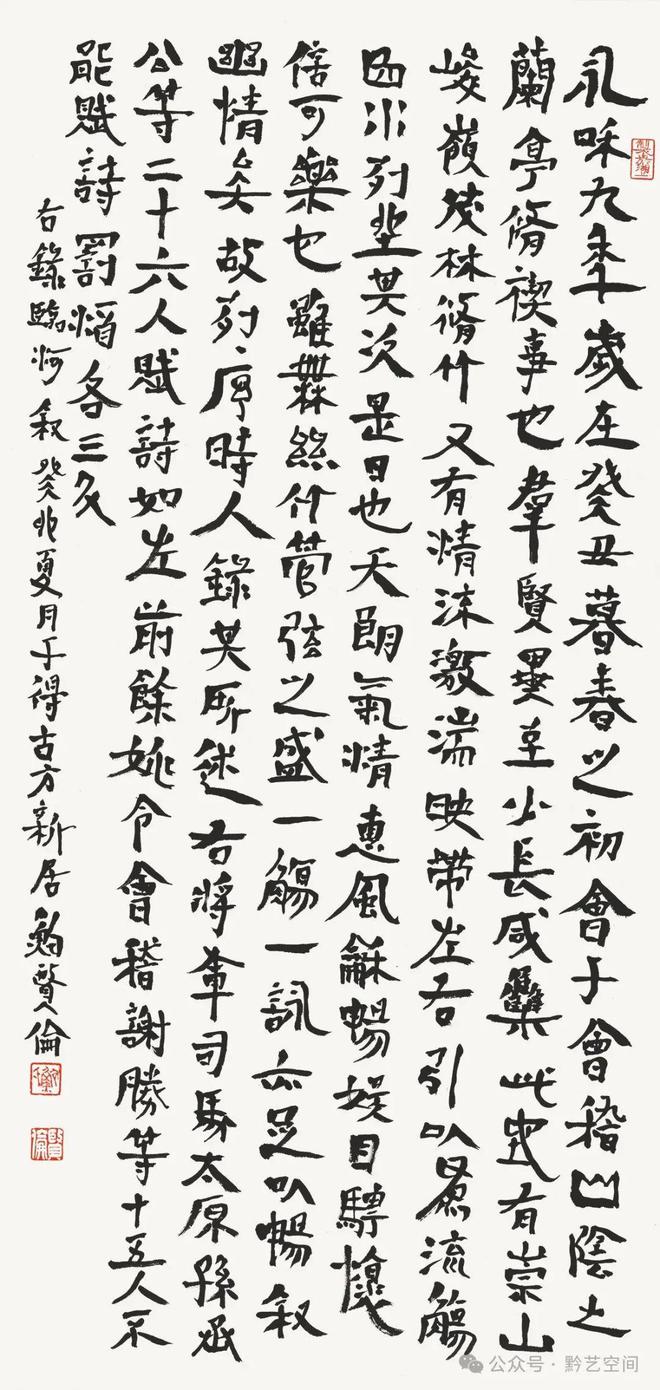 永咊九年歲在癸丑暮春之初會于會稽山陰之
蘭亭脩禊事也羣賢畢至少長咸集此地有崇山
峻嶺茂林脩竹又有清流激湍映帶左右引以爲流觴
曲水列坐其次是日也天朗氣清惠風龢暢娛目騁懷
信可樂也雖無絲竹管弦之盛一觴一詠亦足以暢叙
幽情矣故列序時人錄其所述右將軍司馬太原孫丞
公等二十六人賦詩如左前餘姚令會稽謝勝等十五人不
能賦詩罰酒各三斗
右錄臨河叙癸卯夏月于得古方新居賢倫
公众号·黔艺空间